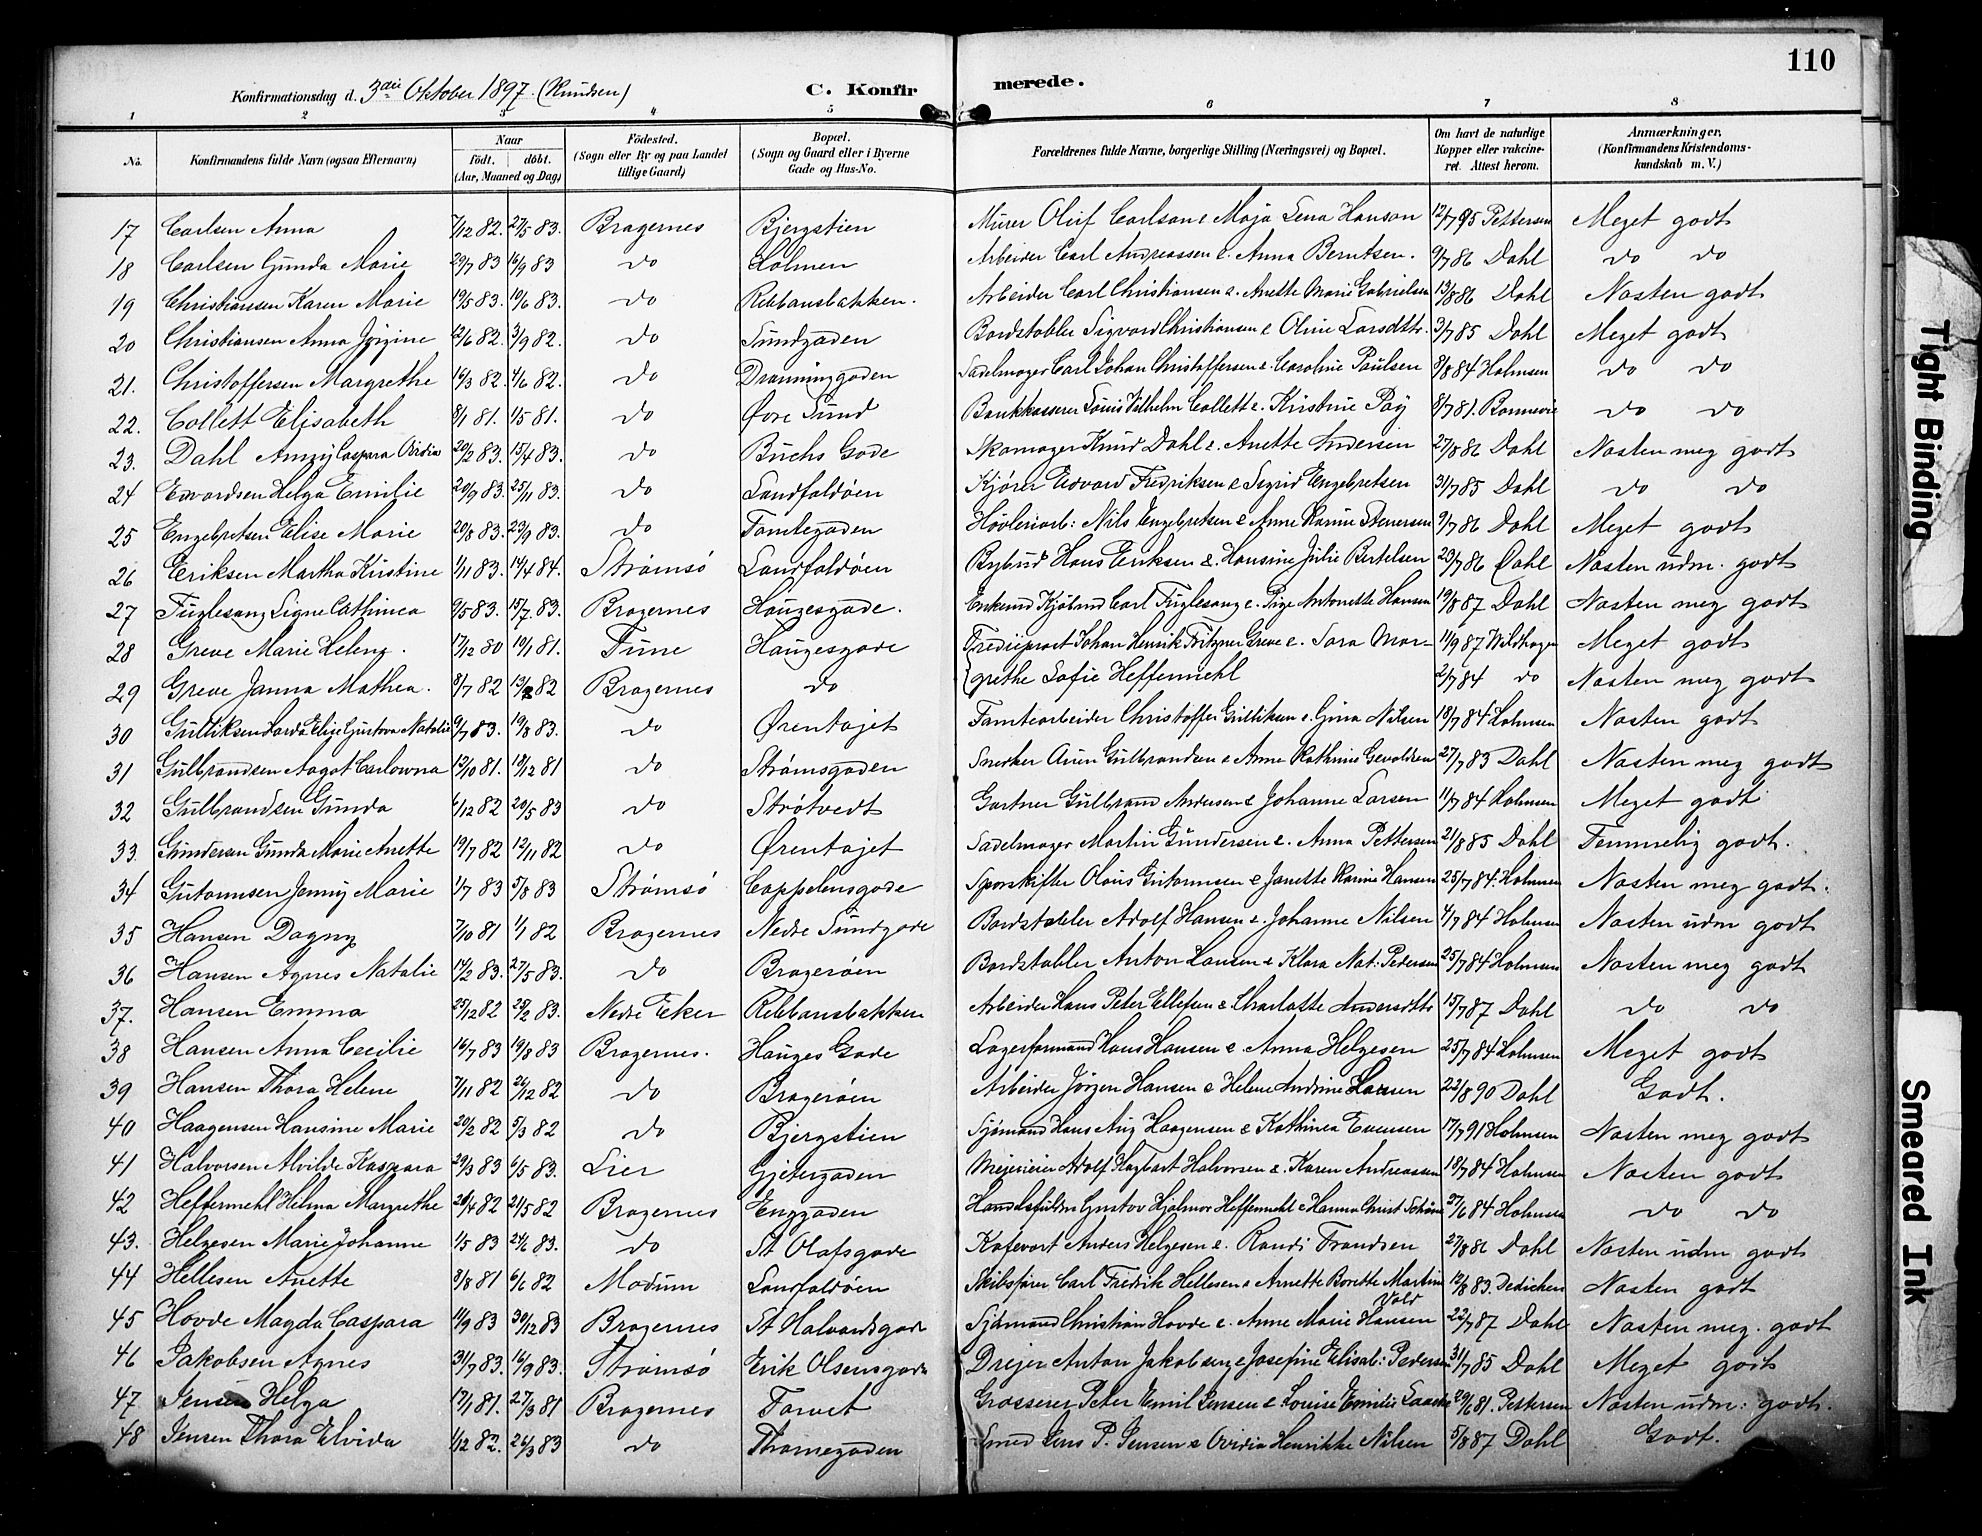 110
Konfirmationsdag d. 3die Oktober 1897. (Knudsen) C. Konfirmerede.
1 2 3 4 5 6 7 8
No. Konfirmandens fulde Navn (ogsaa Efternavn) Naar født. døbt. (Aar, Maaned og Dag) Fødested. (Sogn eller By og paa Landet tillige Gaard) Bopæl. (Sogn og Gaard eller i Byerne Gade og Hus-No. Forældrenes fulde Navne, borgerlige Stilling (Næringsvei) og Bopæl. Om havt de naturlige Kopper eller vakcineret. Attest herom. Anmærkninger. (Konfirmandens Kristendomskundskab m. V.)
17 Carlsen Anna 7/12 82. 27/5 83. Bragernes Bjergstien Murer Oluf Carlson & Maja Lena Hanson 12/7 95 Pettersen Meget godt
18 Carlsen Gunda Marie 29/7 83 16/9 83 do Holmen Arbeider Carl Andreassen & Anna Berntsen. 9/7 86 Dahl do do
19 Christiansen Karen Marie 19/5 83. 10/6 83. do Rebbansbakken. Arbeider Carl Christiansen & Anette Marie Gabrielsen 13/8 86 Dahl Næsten godt
20 Christiansen Anna Jørgine 12/6 82. 3/9 82. do Sundgaden Bordstabler Sigvard Christiansen & Oline Larsdttr. 3/7 85 Dahl Meget godt
21. Christoffersen Margrethe 16/3 82. 4/6 82. do Dronninggaden Sadelmager Carl Johan Christoffersen & Caroline Paulsen 8/8 84 Holmsen do do
22. Collett Elisabeth 8/1 81. 1/5 81. do Øvre Sund Bankkasserer Louis Vilhelm Collett & Kristine Pay 8/7 81. Bonnevie do do
23. Dahl Anny Caspara Ovidia 20/2 83. 15/4 83. do Buchs Gade Skomager Knud Dahl & Anette Andersen 27/8 86 Dahl Næsten meg godt
24 Edvardsen Helga Emilie 20/9 83. 25/11 83. do Landfaldøen Kjører Edvard Fredriksen & Sigrid Engebretsen 31/7 85 Dahl do do
25 Engebretsen Elise Marie 20/8 83. 23/9 83. do Tomtegaden Høvleriarb: Nils Engebretsen & Anne Karine Stenersen 9/7 86 Dahl Meget godt
26 Eriksen Martha Kristine 1/11 83. 14/4 84. Strømsø Landfaldøen Bybud Hans Eriksen & Hansine Julie Bertelsen 23/7 86 Dahl Næsten udm. godt
27 Fuglesang Signe Cathinca 9/5 83. 15/7. 83. Bragernes Haugesgade. Enkemd Kjøbmd Carl Fuglesang & Pige Antonette Hansen 19/8 87 Dahl Næsten meg godt
28 Greve Marie Helene. 17/12 80 10/1 81. Tune Haugesgade Johan Henrik Fritzner Greve & Sara Mar- 11/9 87 Wildhagen Meget godt
29 Greve Janna Mathea. 8/7 82 82 Bragernes do grethe Sofie Heffermehl 2/7 84 do Næsten meg godt
30 Gulliksen Elise Gustava Natalie 9/7 83. 19/8 83. do Ørentajet Tomtearbeider Christoffer Gulliksen & Gina Nilsen 18/7 84 Holmsen Næsten godt
31 Gulbrandsen Aagot Carlowna 12/10 81. 18/12 81 do Strømsgaden Snerker Aven Gulbrandsen & Anne Kathrine Gevoldsen 27/7 83 Dahl Næsten meg godt
32 Gulbrandsen Gunda 6/12 82 20/5 83 do Strøtvedt Gartner Gulbrand Andersen & Johanne Larsen 11/7 84 Holmsen Meget godt
33. Gundersen Gunda Marie Anette 19/7 82 12/11 82 do Ørentajet Sadelmager Martin Gundersen & Anna Pettersen 21/8 85 Dahl Temmelig godt.
34 Gutormsen Jenny Marie 1/7 83 5/8 83 Strømsø Cappelensgade Sporskifter Olaus Gutormsen & Janette Karine Hansen 25/7 84. Holmsen Næsten meg godt.
35 Hansen Dagny 7/10 81 1/1 82 Bragernes Nedre Sundgade Bordstabler Adolf Hansen & Johanne Nilsen 4/7 84 Holmsen Næsten udm godt
36 Hansen Agnes Natalie 14/2 83. 27/5 83. do Bragerøen Bordstabler Anton Hansen & Klara Nat: Pedersen 25/7 84 Holmsen Næsten meg godt
37. Hansen Emma 25/12 82 25/2 83. Nedre Eker Rebbansbakken Arbeider Hans Peter Ellefsen & Charlotte Andersdttr 15/7 87 Dahl do do
38 Hansen Anna Cecilie 16/7 83 19/8 83 Bragernes. Hauges Gade Lagerformand Hans Hansen & Anna Helgesen 25/7 84 Holmsen Meget godt
39 Hansen Thora Helene 7/11 82 26/12 82 do Bragerøen Arbeider Jørgen Hansen & Helene Andrine Larsen 22/8 90 Dahl Godt.
40 Haagensen Hansine Marie 20/2 82 5/3 82 do Bjergstien Sjømand Hans Aug Haagensen & Kathinca Evensen 17/7 91 Holmsen Næsten meg godt
41 Halvorsen Alvilde Kaspara 29/3 83 6/5 83. Lier Gjetergaden Meieriarb Adolf Hagbart Halvorsen & Karen Andreassen 18/7 84 Holmsen Næsten godt
42 Heffermehl Helma Margrethe 20/4 82 21/5 82 Bragernes Enggaden Handelsfuldm Gustav Hjalmar Heffermehl & Hanna Christ 27/6 84 Holmsen do do
43. Helgesen Marie Johanne 1/5 83 24/6 83. do St Olafsgade Kafevært Anders Helgesen & Randi Frandsen 27/8 86 Dahl Næsten udm godt
44 Hellesen Anette 8/8 81 6/6 82 Modum Landfaldøen Skibsfører Carl Fredrik Hellesen & Arnette Borette Martine Vold 12/8 83 Dedichen Næsten godt
45 Hovde Magda Caspara 11/9 83 30/12 83 Bragernes St Halvardsgade Sjømand Christian Hovde & Anne Marie Hansen 22/7 87 Dahl Næsten meg. godt
46 Jakobsen Agnes 31/7 83. 16/9 83. Strømsø Erik Olsensgade Drejer Anton Jakobsen & Josefine Elisab: Pedersen 31/7 85 Dahl Meget godt
47. Jensen Helga 17/1 81. 27/3 81 Bragernes Torvet Grosserer Peter Emil Jensen & Louise Emilie 29/6 81. Pettersen Næsten udm: godt.
48 Jensen Thora Elvida 1/12 82. 26/3 83 do Thornegaden Smed Jens P. Jensen & Ovidia Henrikke Nilsen 5/8 87 Dahl Godt.
Tight Binding
Smeared Ink